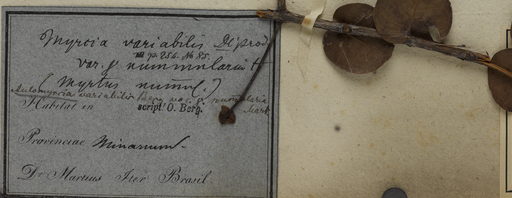 Myrcia variabilis DC prod.
III p. 254. No 85.
var. β nummularia
(Myrtus numm.)
Aulomyrcia variabilis Berg var. β. nummularia
Mart.
Habitat in
script. O. Berg.
Provinciae Minarum
Dr Martius Iter Brasil.